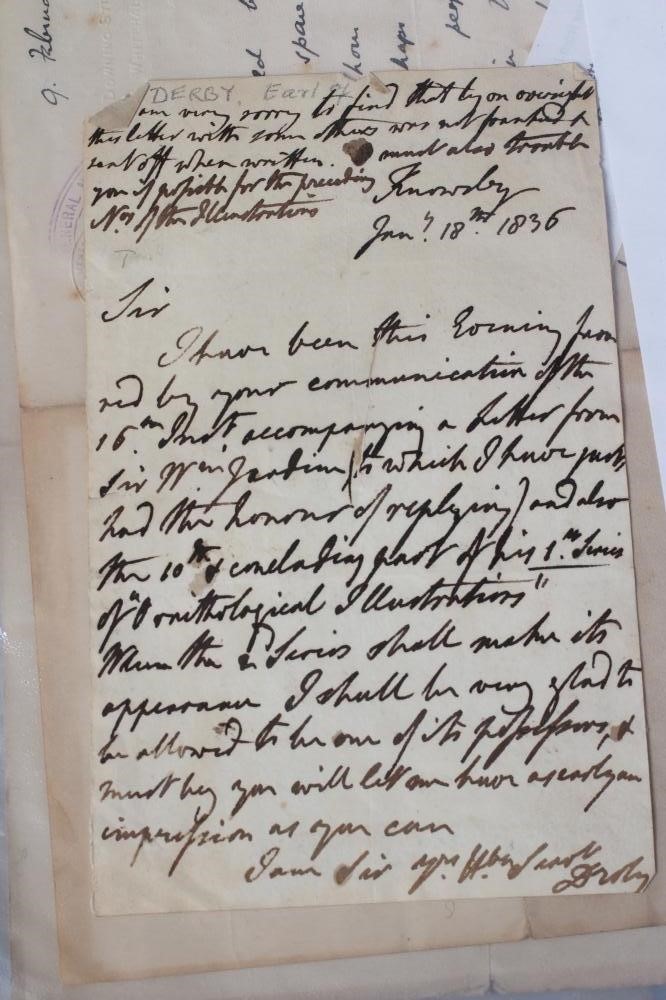 9. Februa
DOWNING ST
WHITEHALL
ed
spare
thom
haps
peop
in
DERBY, Earl of
am very sorry to find that by an oversight
this letter with some others was not franked &
sent off when written. must also trouble
you if possible for the preceding
Nos. of the Illustrations
Knowsley
Jany. 18th 1836
Sir
I have been this Evening favou
red by your communication of the
16th Inst accompanying a Letter from
Sir Wm Jardine (to which I have just
had the honour of replying) and also
the 10th & concluding part of his 1st Series
of "Ornithological Illustrations"
When the 2d Series shall make its
appearance I shall be very glad to
be allowed to be one of its possessors, &
must beg you will let me have as early an
impression as you can
I am Sir yrs. Hble Servt
Derby